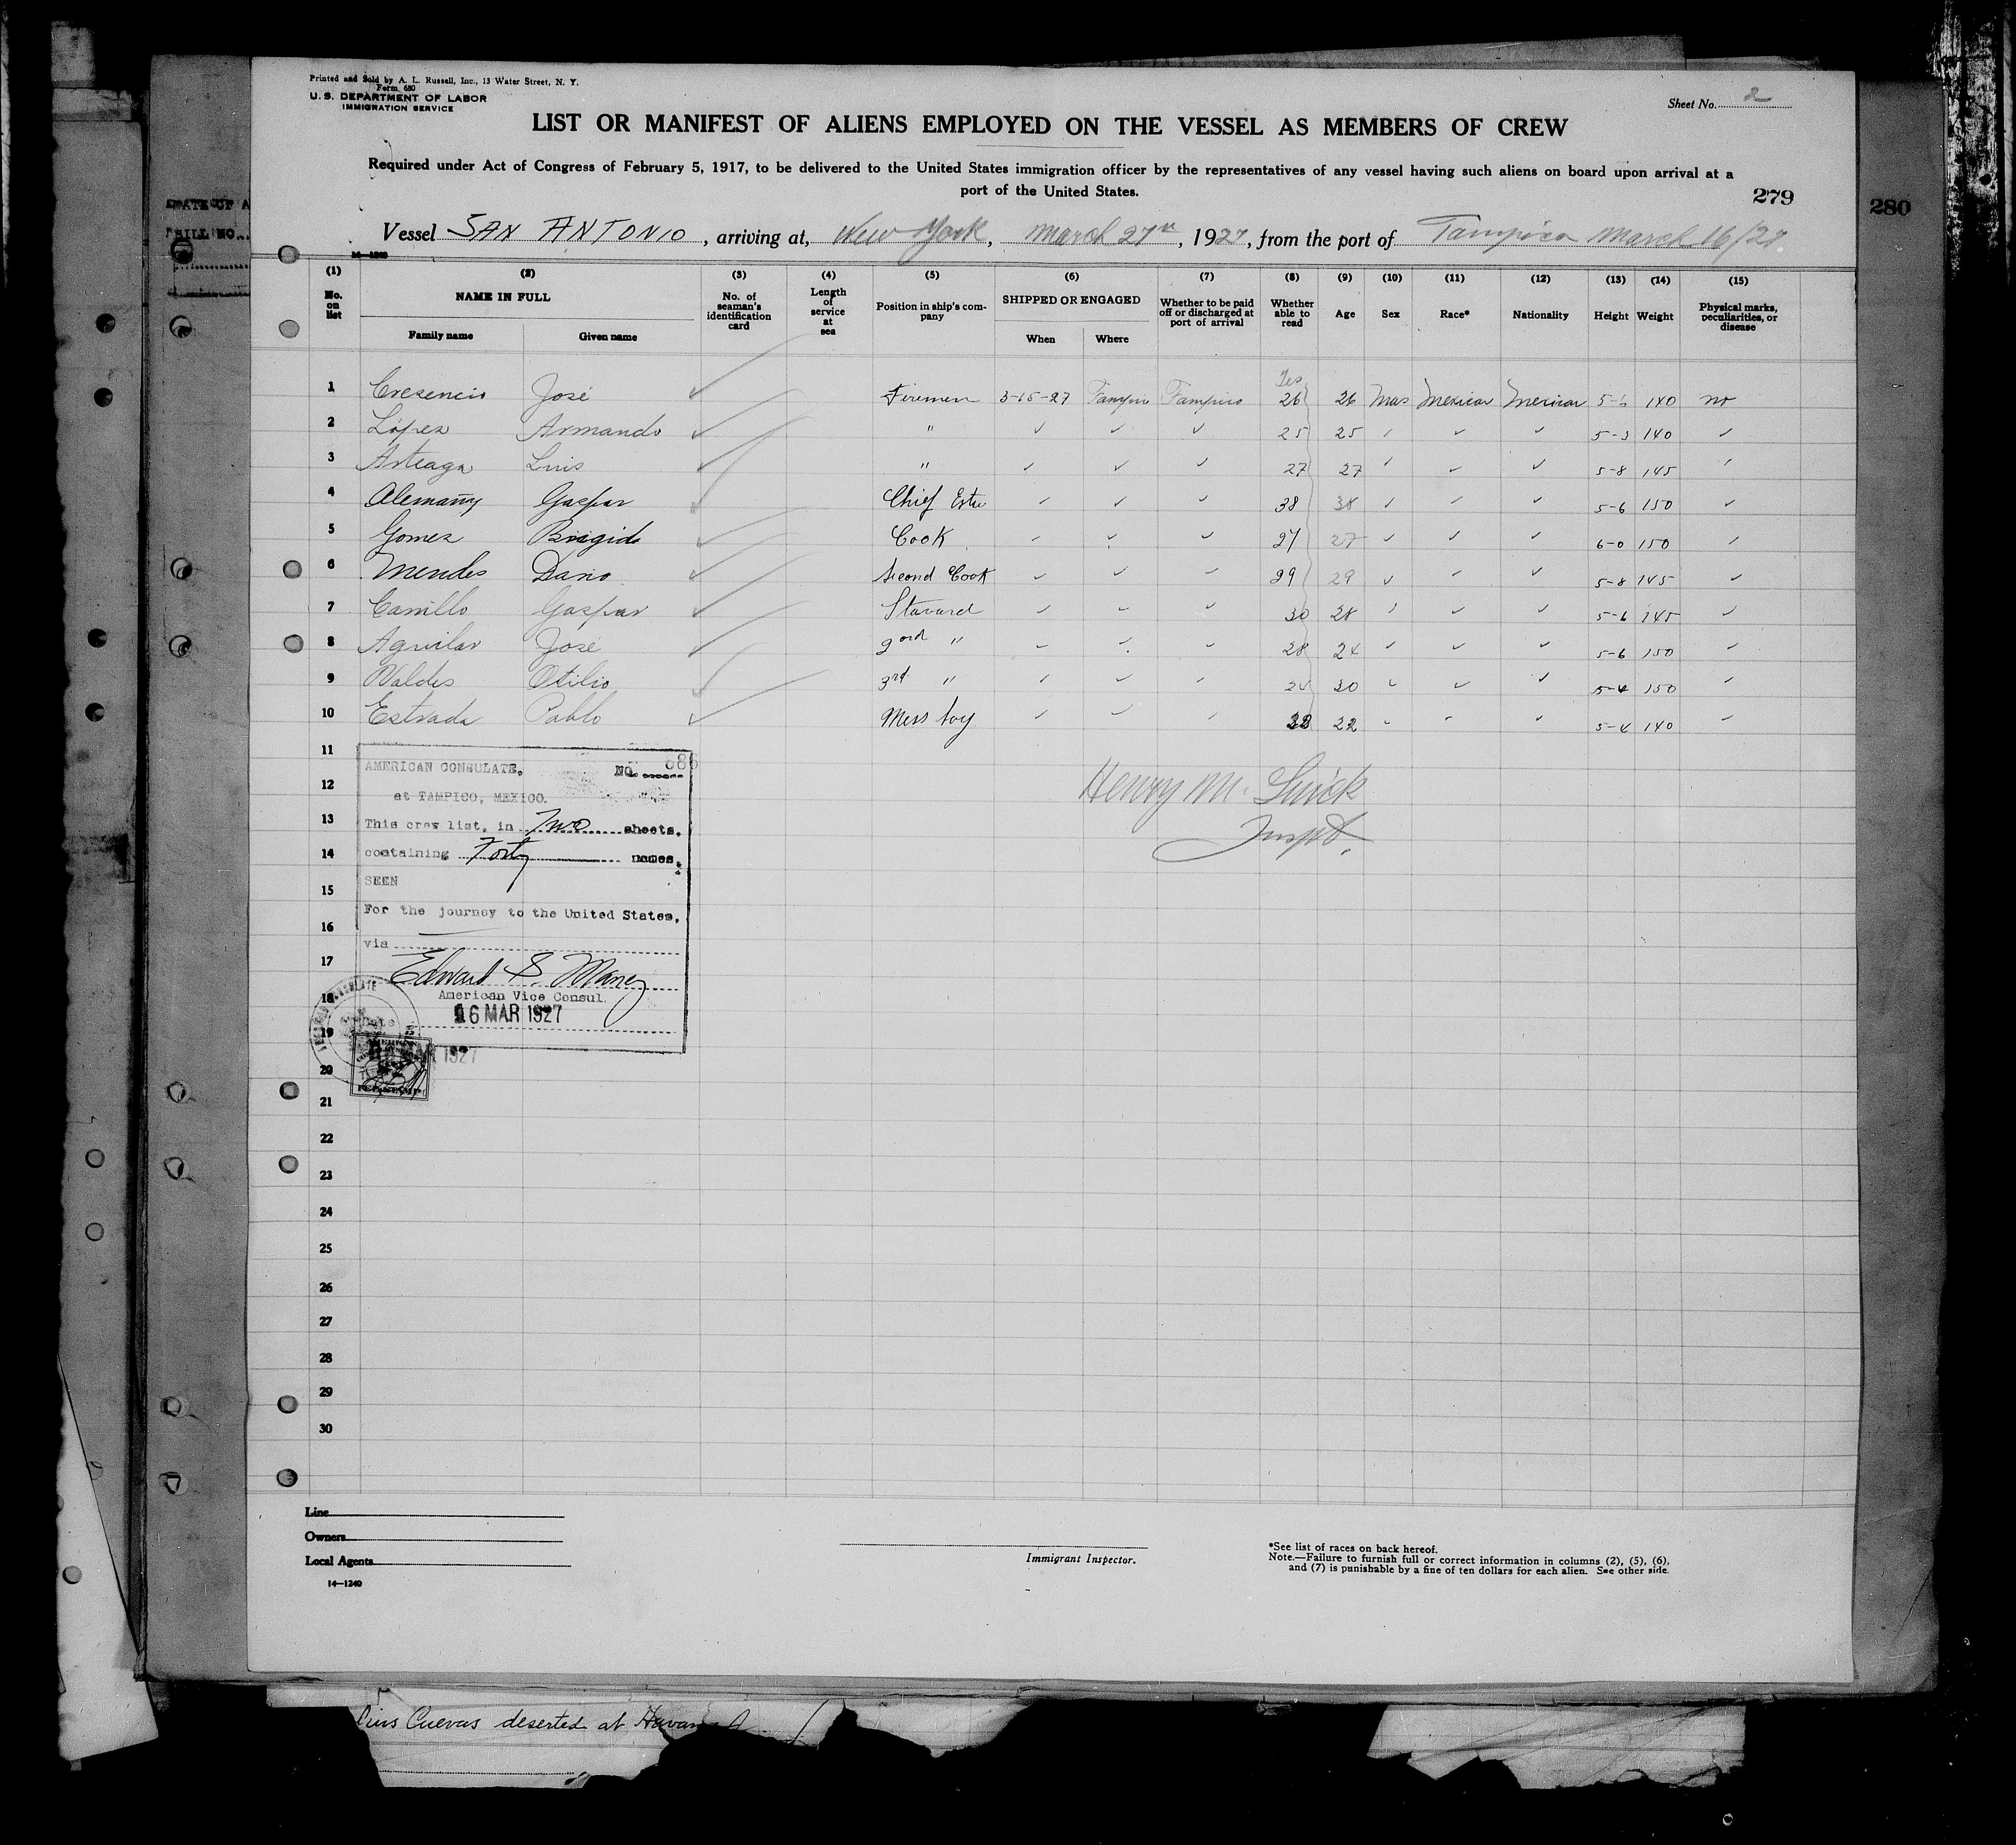 Printed and Sold by A. L. Russell, Inc., 13 Water Street, N. Y.
Form 680
U. S. DEPARTMENT OF LABOR
IMMIGRATION SERVICE
Sheet No. 2
LIST OR MANIFEST OF ALIENS EMPLOYED ON THE VESSEL AS MEMBERS OF CREW
Required under Act of Congress of February 5, 1917, to be delivered to the United States immigration officer by the representatives of any vessel having such aliens on board upon arrival at a
port of the United States.
279
280
Vessel SAN ANTONIO, arriving at, New York, March 27th, 1927, from the port of Tampico March 16/27
14-1240
(1) (2) (3) (4) (5) (6) (7) (8) (9) (10) (11) (12) (13) (14) (15)
No. on list NAME IN FULL Family name Given name No. of seaman's identification card Length of service at sea Position in ship's company SHIPPED OR ENGAGED When Where Whether to be paid off or discharged at port of arrival Whether able to read Age Sex Race* Nationality Height Weight Physical marks, peculiarities, or disease
Yes
1 Cresencio José ✓ Firemen 3-15-27 Tampico Tampico 26 26 Mas Mexican Mexican 5-6 140 no
2 López Armando ✓ " ✓ ✓ ✓ 25 25 ✓ ✓ ✓ 5-3 140 ✓
3 Arteaga Luis ✓ " ✓ ✓ ✓ 27 27 ✓ ✓ ✓ 5-8 145 ✓
4 Alemañy Gaspar ✓ Chief ✓ ✓ ✓ 38 38 ✓ ✓ ✓ 5-6 150 ✓
5 Gomez Brigido ✓ Cook ✓ ✓ ✓ 27 27 ✓ ✓ ✓ 6-0 150 ✓
6 Mendes Dario ✓ Second Cook ✓ ✓ ✓ 29 29 ✓ ✓ ✓ 5-8 145 ✓
7 Carrillo Gaspar ✓ Stavard ✓ ✓ ✓ 30 28 ✓ ✓ ✓ 5-6 145 ✓
8 Aguilar José ✓ 2ond " ✓ ✓ ✓ 28 24 ✓ ✓ ✓ 5-6 150 ✓
9 Valdes Otilio ✓ 3rd " ✓ ✓ ✓ 30 ✓ ✓ ✓ 5-4 150 ✓
10 Estrada Pablo ✓ Mess boy ✓ ✓ ✓ 22 ✓ ✓ ✓ 5-4 140 ✓
11
12
13
14
15
16
17
18
19
20
21
22
23
24
25
26
27
28
29
30
AMERICAN CONSULATE, NO. 686
at TAMPICO, MEXICO.
This crew list, in Two sheets,
containing Forty names.
SEEN
For the journey to the United States,
via
Edward S. Maney
American Vice Consul.
16 MAR 1927
MAR 1927
Henry M.
Inspt.
Line
Owners
Local Agents
14-1240
Immigrant Inspector.
*See list of races on back hereof.
Note.—Failure to furnish full or correct information in columns (2), (5), (6),
and (7) is punishable by a fine of ten dollars for each alien. See other side.
Cuevas deserted at Havana